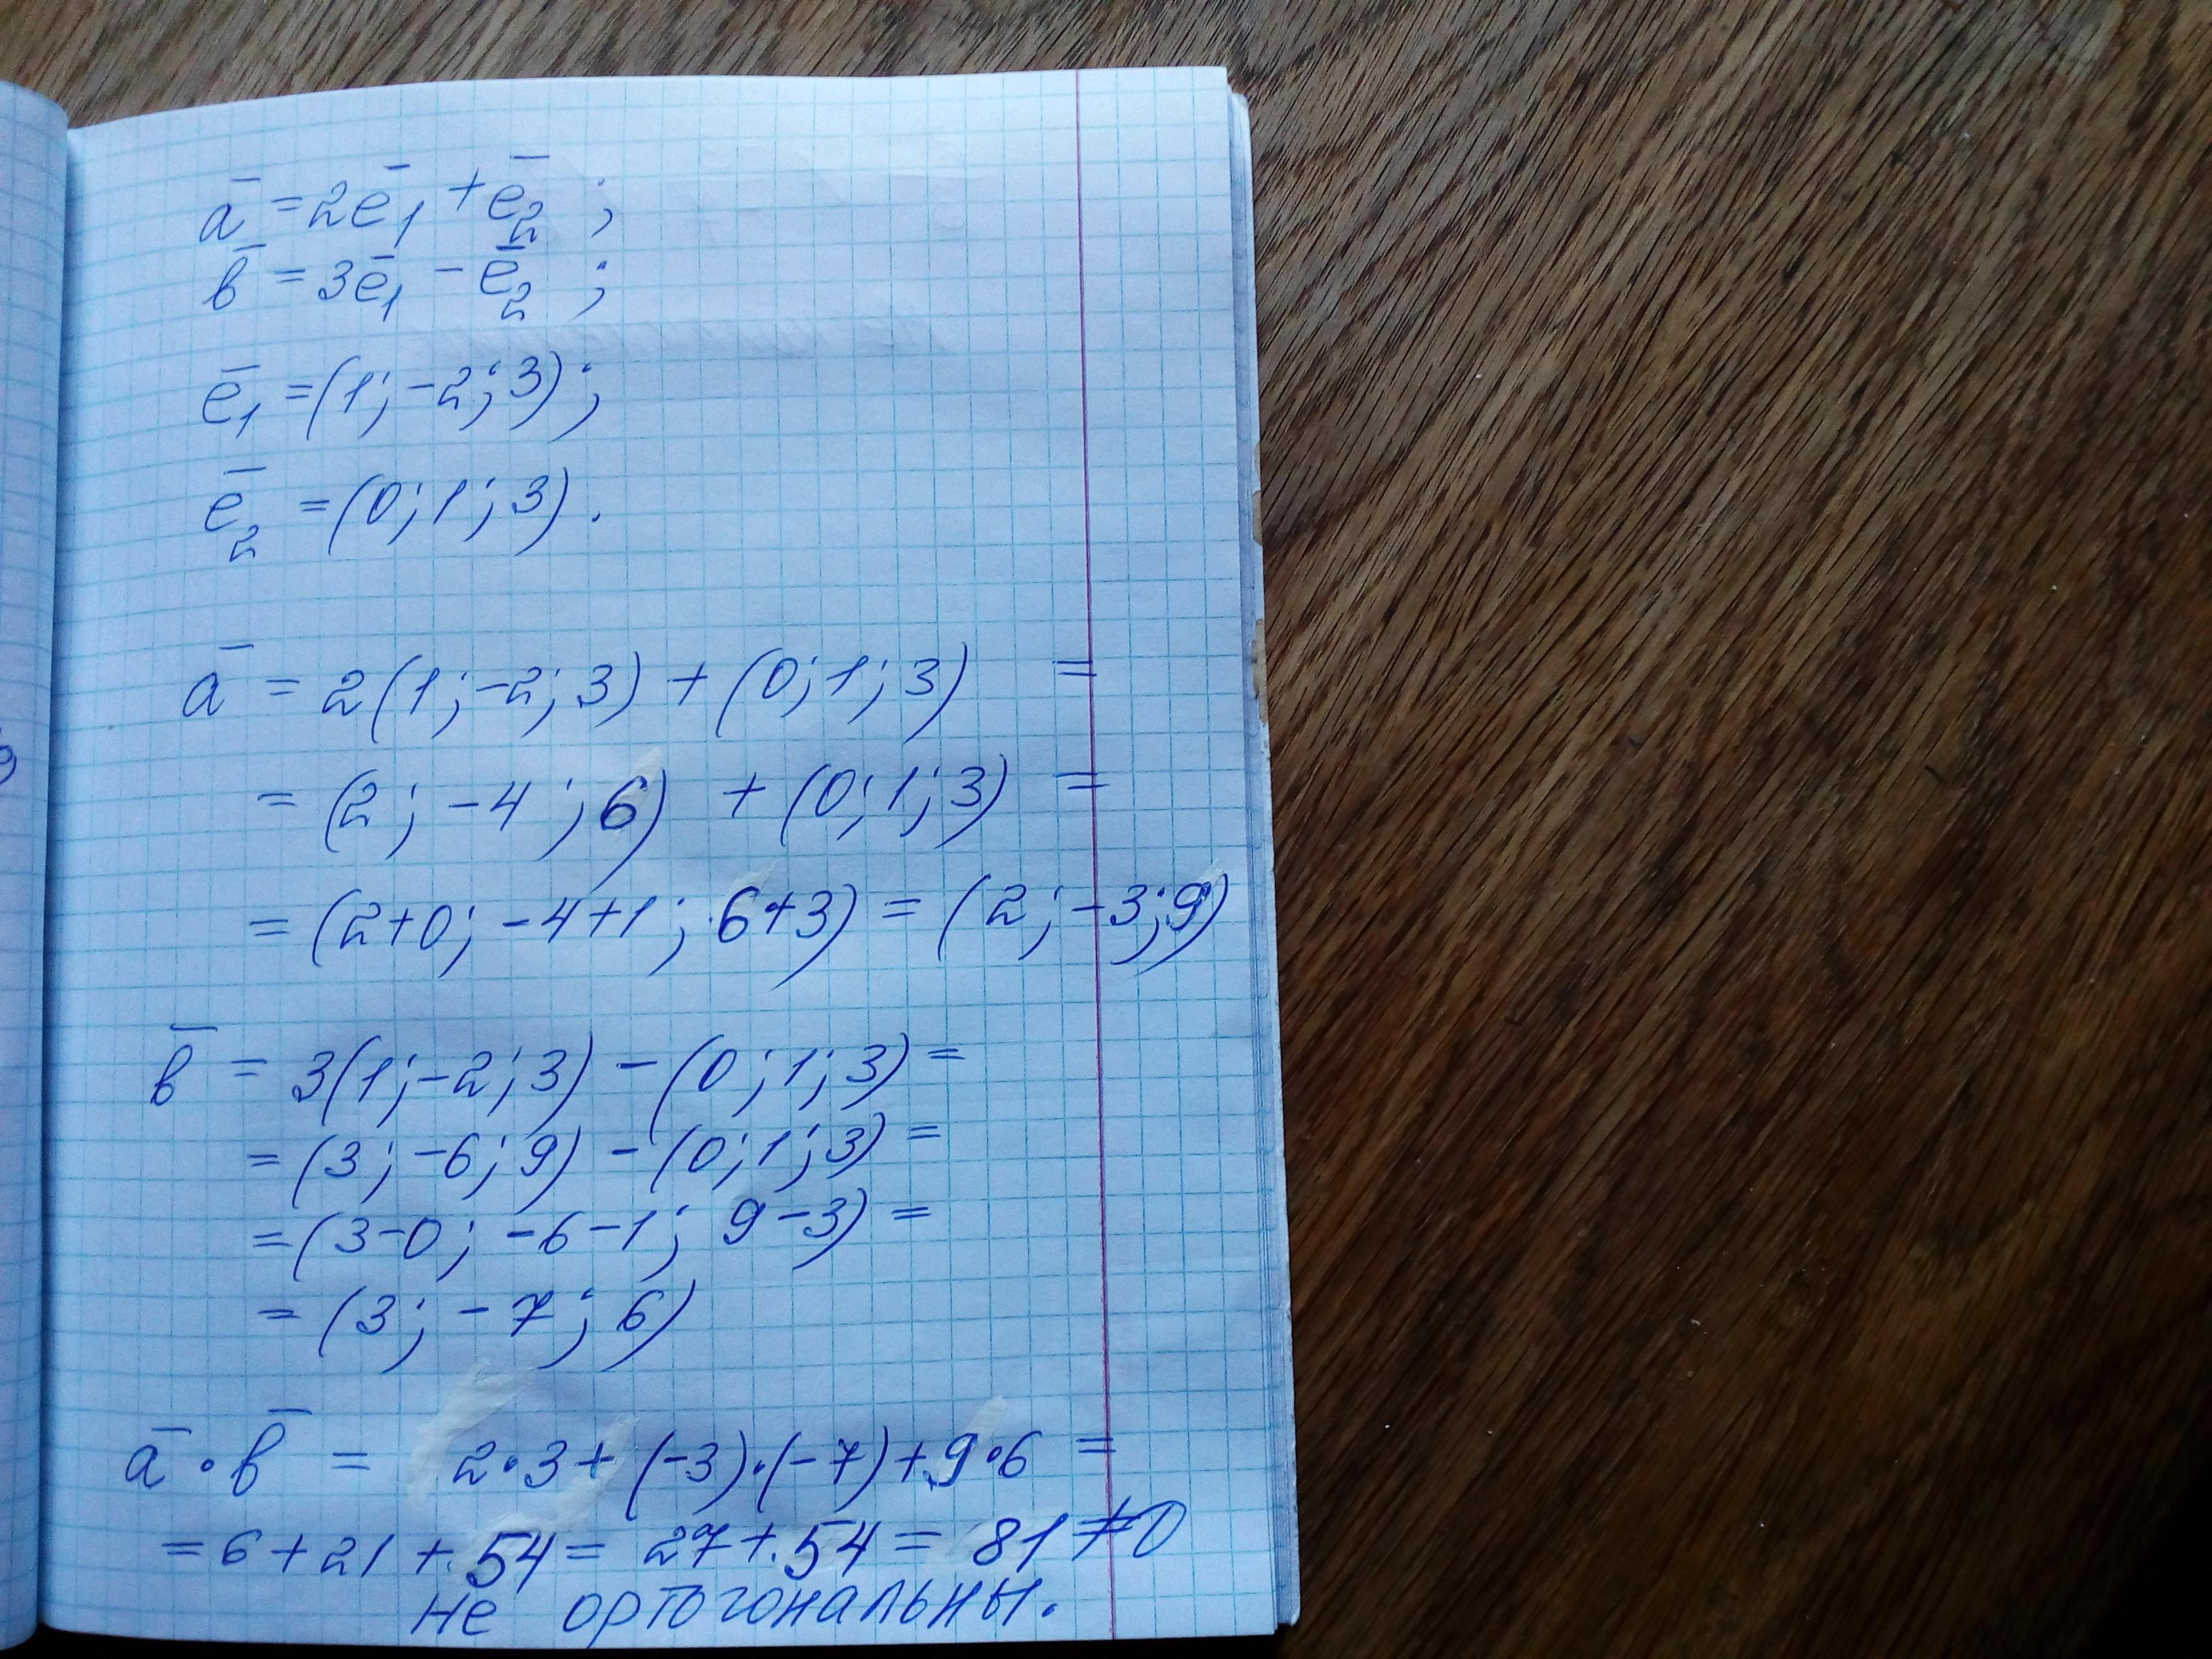 a̅ = 2e̅₁ + e̅₂ ;
b̅ = 3e̅₁ - e̅₂ ;
e̅₁ = (1; -2; 3);
e̅₂ = (0; 1; 3).
a̅ = 2(1; -2; 3) + (0; 1; 3) =
= (2; -4; 6) + (0; 1; 3) =
= (2+0; -4+1; 6+3) = (2; -3; 9)
b̅ = 3(1; -2; 3) - (0; 1; 3) =
= (3; -6; 9) - (0; 1; 3) =
= (3-0; -6-1; 9-3) =
= (3; -7; 6)
a̅ · b̅ = 2·3 + (-3)·(-7) + 9·6 =
= 6 + 21 + 54 = 27 + 54 = 81 ≠ 0
не ортогональны.